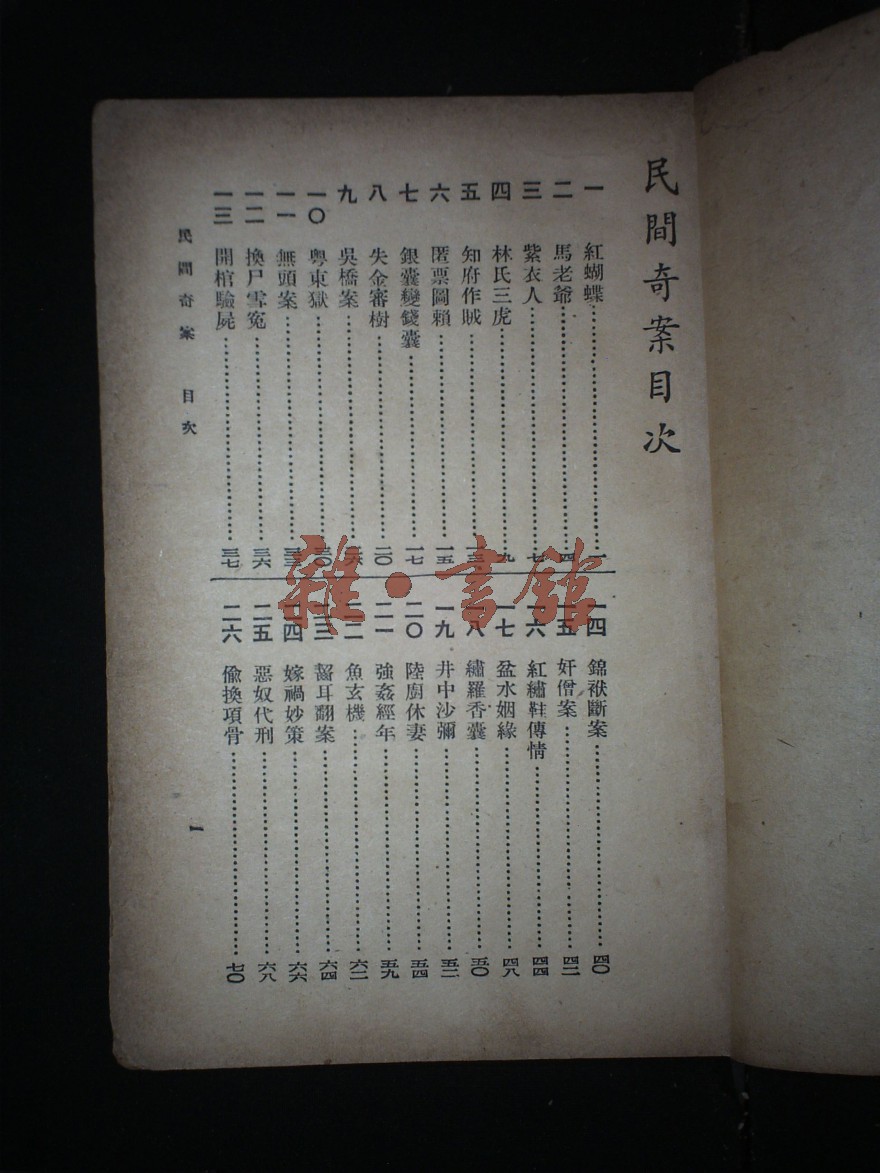 民間奇案目次
一 紅蝴蝶……一
二 馬老爺……四
三 紫衣人……七
四 林氏三虎……九
五 知府作賊……
六 匿票圖賴……一五
七 銀囊變錢囊……一七
八 失金審樹……二〇
九 吳橋案……
一〇 粵東獄……三〇
一一 無頭案……
一二 換尸雪冤……三六
一三 開棺驗屍……三七
一四 錦袱斷案……四〇
一五 奸僧案……四二
一六 紅繡鞋傳情……四四
一七 盆水姻緣……四八
一八 繡羅香囊……五〇
一九 井中沙彌……五二
二〇 陸廚休妻……五四
二一 強姦經年……五九
二二 魚玄機……六二
二三 齧耳翻案……六四
二四 嫁禍妙策……六六
二五 惡奴代刑……六八
二六 偷換項骨……七〇
民間奇案 目次
1
雜·書館